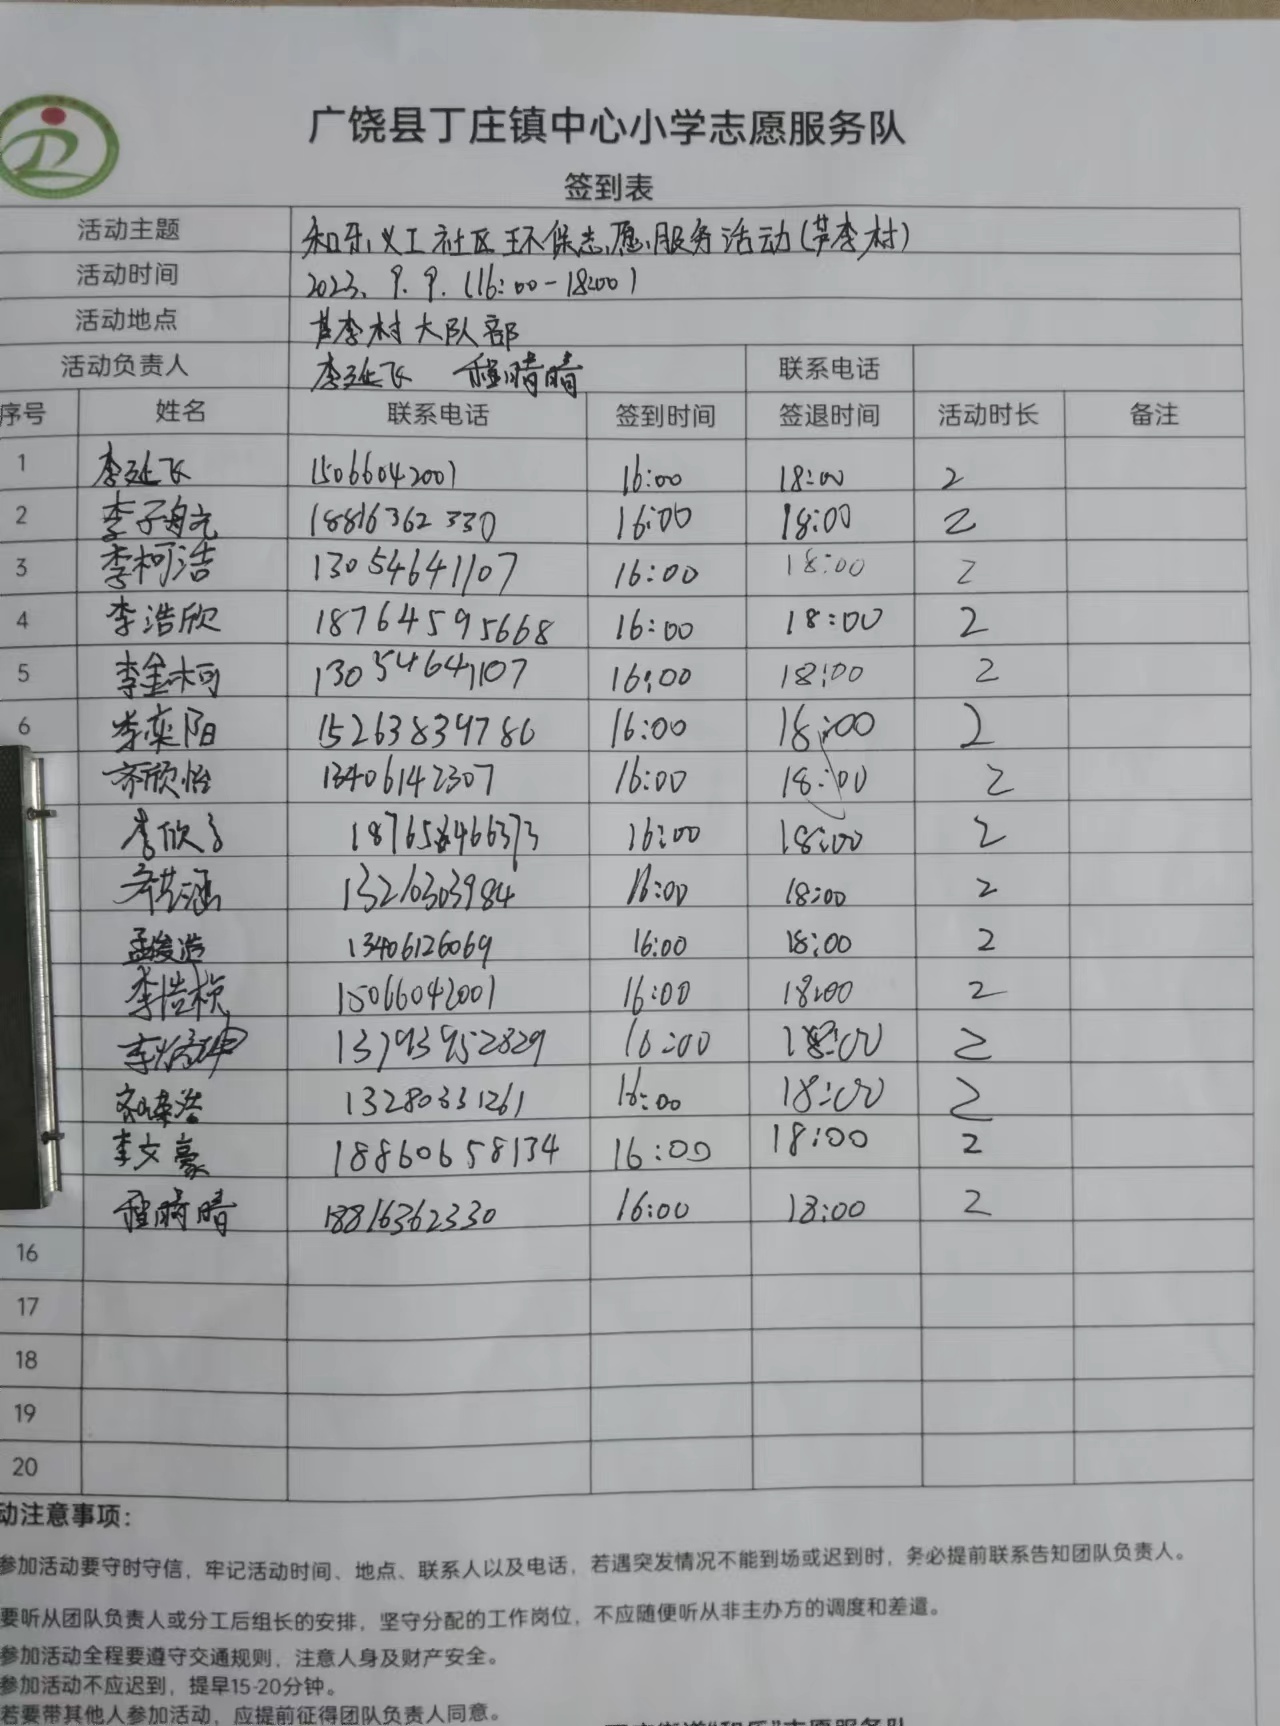 广饶县丁庄镇中心小学志愿服务队
签到表
活动主题 和乐义工社区环保志愿服务活动(芦李村)
活动时间 2023.9.9.(16:00-18:00)
活动地点 芦李村大队部
活动负责人 李延飞 程晴晴 联系电话
序号 姓名 联系电话 签到时间 签退时间 活动时长 备注
1 李延飞 15066042001 16:00 18:00 2
2 李子 18816362330 16:00 18:00 2
3 李柯浩 13054641107 16:00 18:00 2
4 李浩欣 18764595668 16:00 18:00 2
5 李金柯 13054641107 16:00 18:00 2
6 李栾阳 15263839786 16:00 18:00 2
齐欣怡 13406142307 16:00 18:00 2
李欣 16:00 18:00 2
涵 16:00 18:00 2
孟俊浩 13406126069 16:00 18:00 2
李浩桢 15066042001 16:00 18:00 2
李 坤 16:00 18:00 2
浩 13280331261 16:00 18:00 2
李文豪 18860658134 16:00 18:00 2
程晴晴 18816362330 16:00 18:00 2
16
17
18
19
20
动注意事项：
参加活动要守时守信，牢记活动时间、地点、联系人以及电话，若遇突发情况不能到场或迟到时，务必提前联系告知团队负责人。
要听从团队负责人或分工后组长的安排，坚守分配的工作岗位，不应随便听从非主办方的调度和差遣。
参加活动全程要遵守交通规则，注意人身及财产安全。
参加活动不应迟到，提早15-20分钟。
若要带其他人参加活动，应提前征得团队负责人同意。